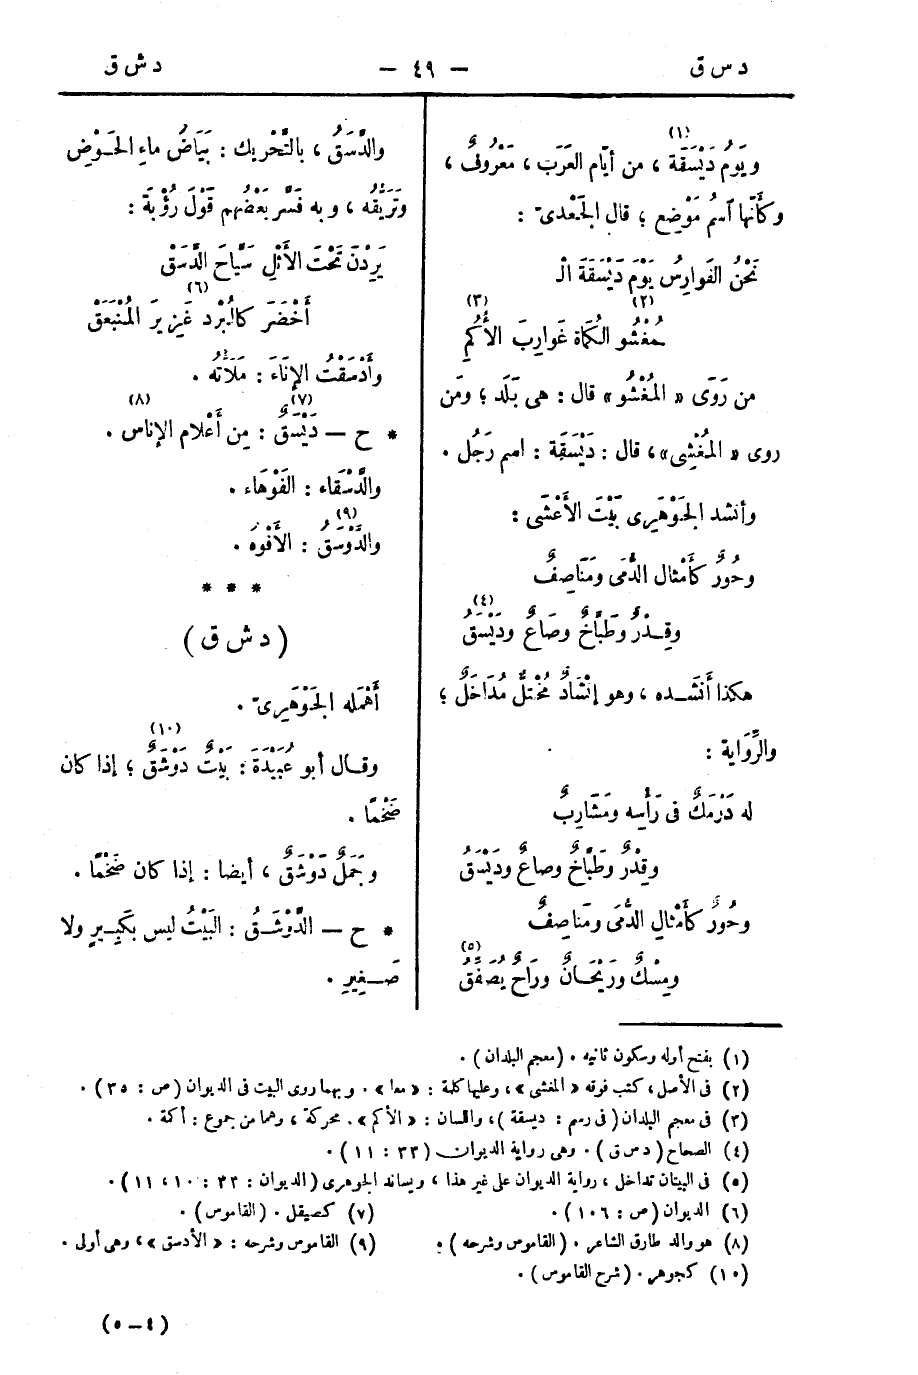 د س ق
— ٤٩ —
د ش ق
(١)
ويَومُ دَيْسَقَة ، من أيّام العَرَب ، مَعْروفٌ ،
وكأَنّها ٱسمُ مَوْضِع ؛ قال الجَعْدىّ :
نَحْنُ الفَوارِسُ يَوْمَ دَيْسَقَةَ الْـ
(٢) (٣)
ـمُغْشُو الكُمَاةَ غَوارِبَ الأُكُمِ
من رَوَى « المُغْشُو » قال : هى بَلَد ؛ ومَن
روى « المُغْشِى »، قال : دَيْسَقَة : اسم رَجُل .
وأنشد الجَوْهَرِى بَيْتَ الأَعْشَى :
وحُورٌ كأَمْثال الدُّمَى ومَنَاصِفٌ
(٤)
وقِـدْرٌ وطَبّاخٌ وصَاعٌ ودَيْسَقُ
هكذا أَنشَــده ، وهو إنْشَادٌ مُخْتلٌّ مُدَاخَلٌ ؛
والرِّوَاية :
له دَرْمَكٌ فى رَأْسِه ومَشَارِبٌ
وقِدْرٌ وطَبّاخٌ وصاعٌ ودَيْسَقُ
وحُورٌ كأَمْثالِ الدُّمَى ومَناصِفٌ
(٥)
ومِسْكٌ ورَيْحَــانٌ ورَاحٌ يُصَفَّقُ
والدَّسَقُ ، بالتَّحْرِيك : بَيَاضُ ماءِ الحَـوْضِ
وتَرَيُّقُه ، و به فَسَّر بَعْضُهم قَوْلَ رُؤْبَة :
يَرِدْنَ تَحْتَ الأَثْلِ سَيَّاحَ الدَّسَقْ
(٦)
أَخْضَرَ كالبُرْدِ غَزِيرَ المُنْبَعَقْ
وأَدْسَقْتُ الإنَاءَ : مَلَأتُه .
(٧) (٨)
* ح — دَيْسَقٌ : مِن أَعْلام الإناس .
والدَّسْقَاء : الفَوْهَاء .
(٩)
والدَّوْسَقُ : الأَفْوَهُ .
* * *
( د ش ق )
أَهْمَله الجَوْهَرِىّ .
(١٠)
وقــال أبو عُبَيْدَةَ : بَيْتٌ دَوْشَقٌ ؛ إذا كان
ضَخْمًا .
وجَمَلٌ دَوْشَقٌ ، أيضا : إذا كان ضَخْمًا .
* ح — الدَّوْشَــقُ : البَيْتُ ليس بكَبِيــرٍ ولا
صَــغِيرٍ .
(١) بفتح أوله وسكون ثانيه . (معجم البلدان) .
(٢) فى الأصل ، كتب فوقه « المغشى »، وعليها كلمة : « معا » . وبهما روى البيت فى الديوان (ص : ٣٥) .
(٣) فى معجم البلدان ( فى رسم : ديسقة )، واللسان : « الأكم ». محركة ، وهما من جموع : أكمة .
(٤) الصحاح ( د س ق ) . وهى رواية الديوان (٣٣ : ١١) .
(٥) فى البيتان تداخل ، رواية الديوان على غير هذا ، ويساند الجوهرى (الديوان : ٣٣ : ١٠، ١١) .
(٦) الديوان (ص : ١٠٦) . (٧) كصيقل . (القاموس) .
(٨) هو والد طارق الشاعر . (القاموس وشرحه) . (٩) القاموس وشرحه : « الأدسق »، وهى أولى .
(١٠) كجوهر . (شرح القاموس) .
(٤ — ٥)